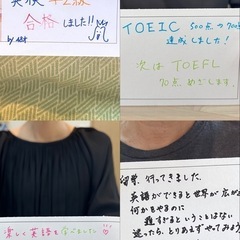 英検準2級
合格しました!!
TOEIC 500点→700点
達成しました!
次は TOEFL
70点 めざします。
楽しく英語を学べました!!!
留学、行ってきました。
英語ができると世界が広が
何かをやるのに
難すぎるということはない
迷ったら、とりあえずやってみよう